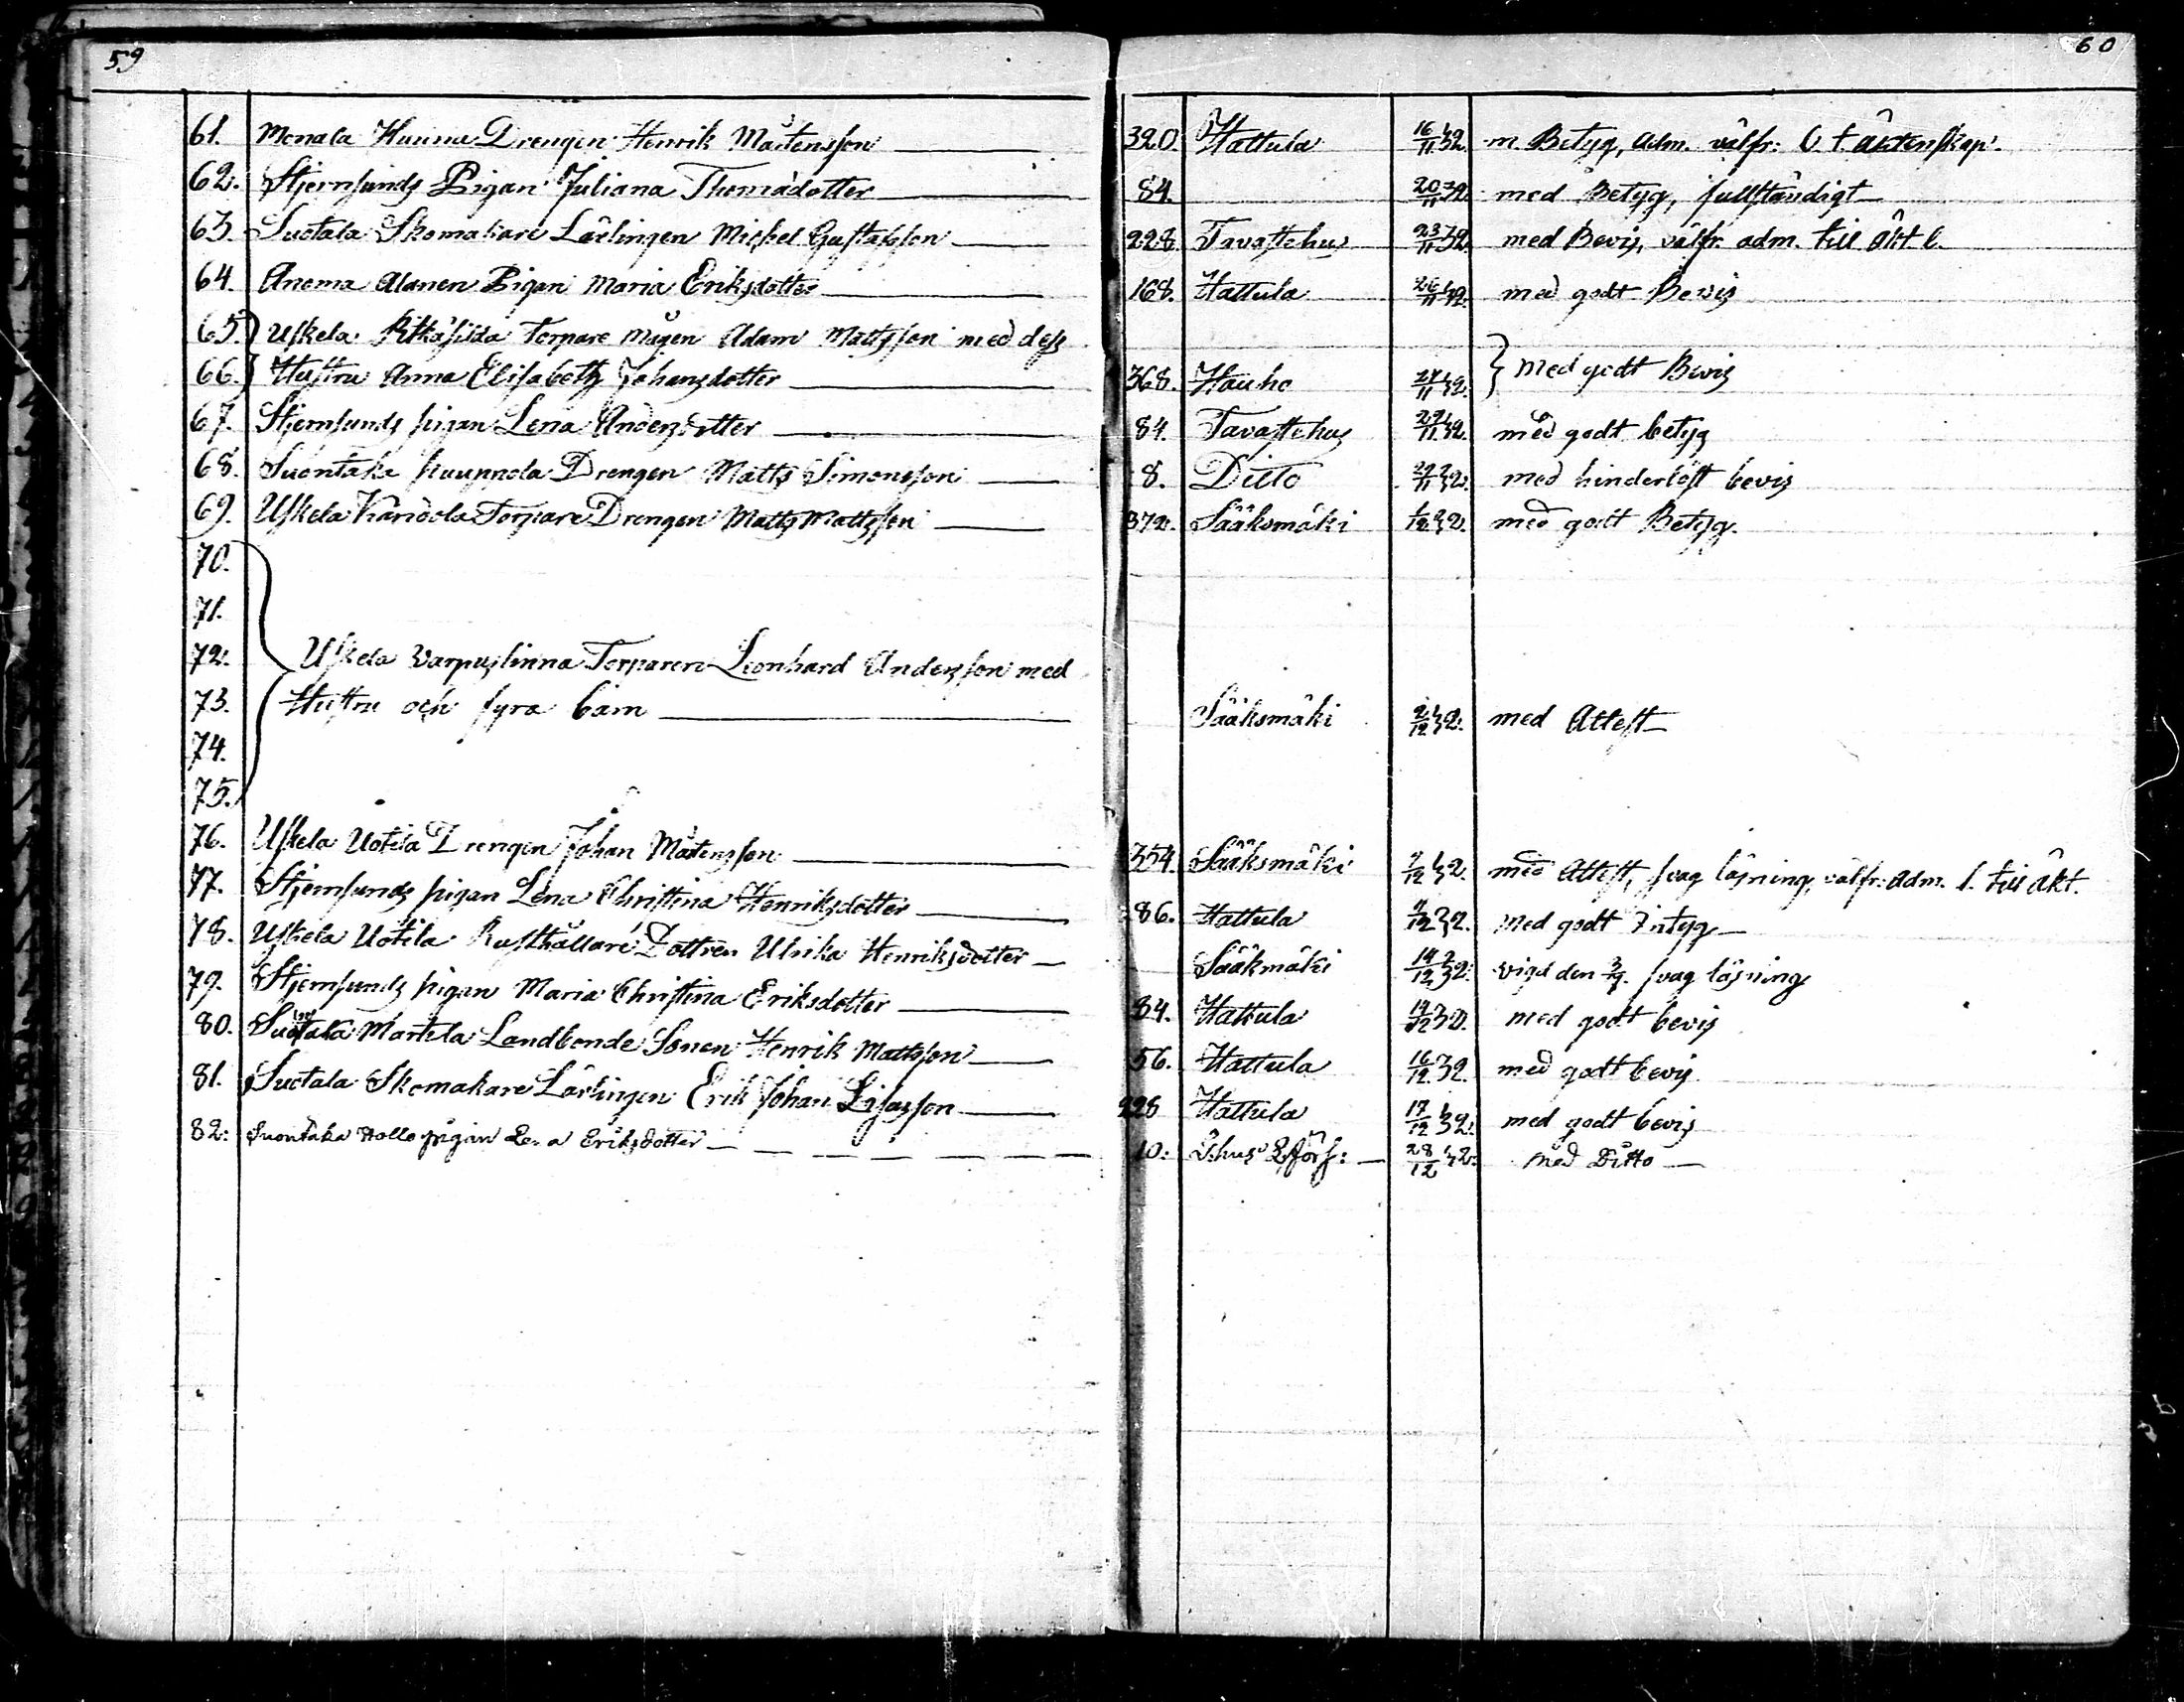 59
60
61. Monala Hunna Drengen Henrik Mårtensson 320. Hattula 16/11 32. m. Betyg, adm. välfr: l. t. äktenskap.
62. Stjernsunds Pigan Juliana Thomasdotter 84. 20/11 32. med Betyg, fullständigt
63. Suotala Skomakare Lärlingen Michel Gustafsson 228. Tavastehus 23/11 32. med Bevis, välfr. adm. till äkt. l.
64. Anema Alanen Pigan Maria Eriksdotter 168. Hattula 26/11 32. med godt Bevis
65. Uskela Pitkäsilda Torpare Mågen Adam Mattsson med dess
66. Hustru Anna Elisabeth Johansdotter 368. Hauho 27/11 32. med godt Bevis
67. Stjernsunds pigan Lena Andersdotter 84. Tavastehus 29/11 32. med godt betyg
68. Suontaka Kauppola Drengen Matts Simonsson 8. Ditto 29/11 32. med hinderlöst bevis
69. Uskela Torpare Drengen Matts Mattsson 372. Sääksmäki 1/12 32. med godt Betyg.
70.
71.
72. Uskela Varpuslinna Torparen Leonhard Andersson med
73. Hustru och fyra barn Sääksmäki 2/12 32. med Attest
74.
75.
76. Uskela Uotila Drengen Johan Mårtensson 354. Sääksmäki 9/12 32. med Attest, svag läsning, välfr: adm. l. till äkt.
77. Stjernsunds pigan Lena Christina Henriksdotter 86. Hattula 9/12 32. med godt Intyg
78. Uskela Uotila Rusthållare Dottren Ulrika Henriksdotter Sääkmäki 14/12 32. vigd den svag läsning
79. Stjernsunds pigan Maria Christina Eriksdotter 84. Hattula 14/12 32. med godt bevis
80. Martela Landbonde Sonen Henrik Mattsson 56. Hattula 16/12 32. med godt bevis
81. Suotala Skomakare Lärlingen Erik Johan 228 Hattula 17/12 32. med godt bevis
82: Suontaka Hollo pigan Lena Eriksdotter 10: 28/12 32: med Ditto